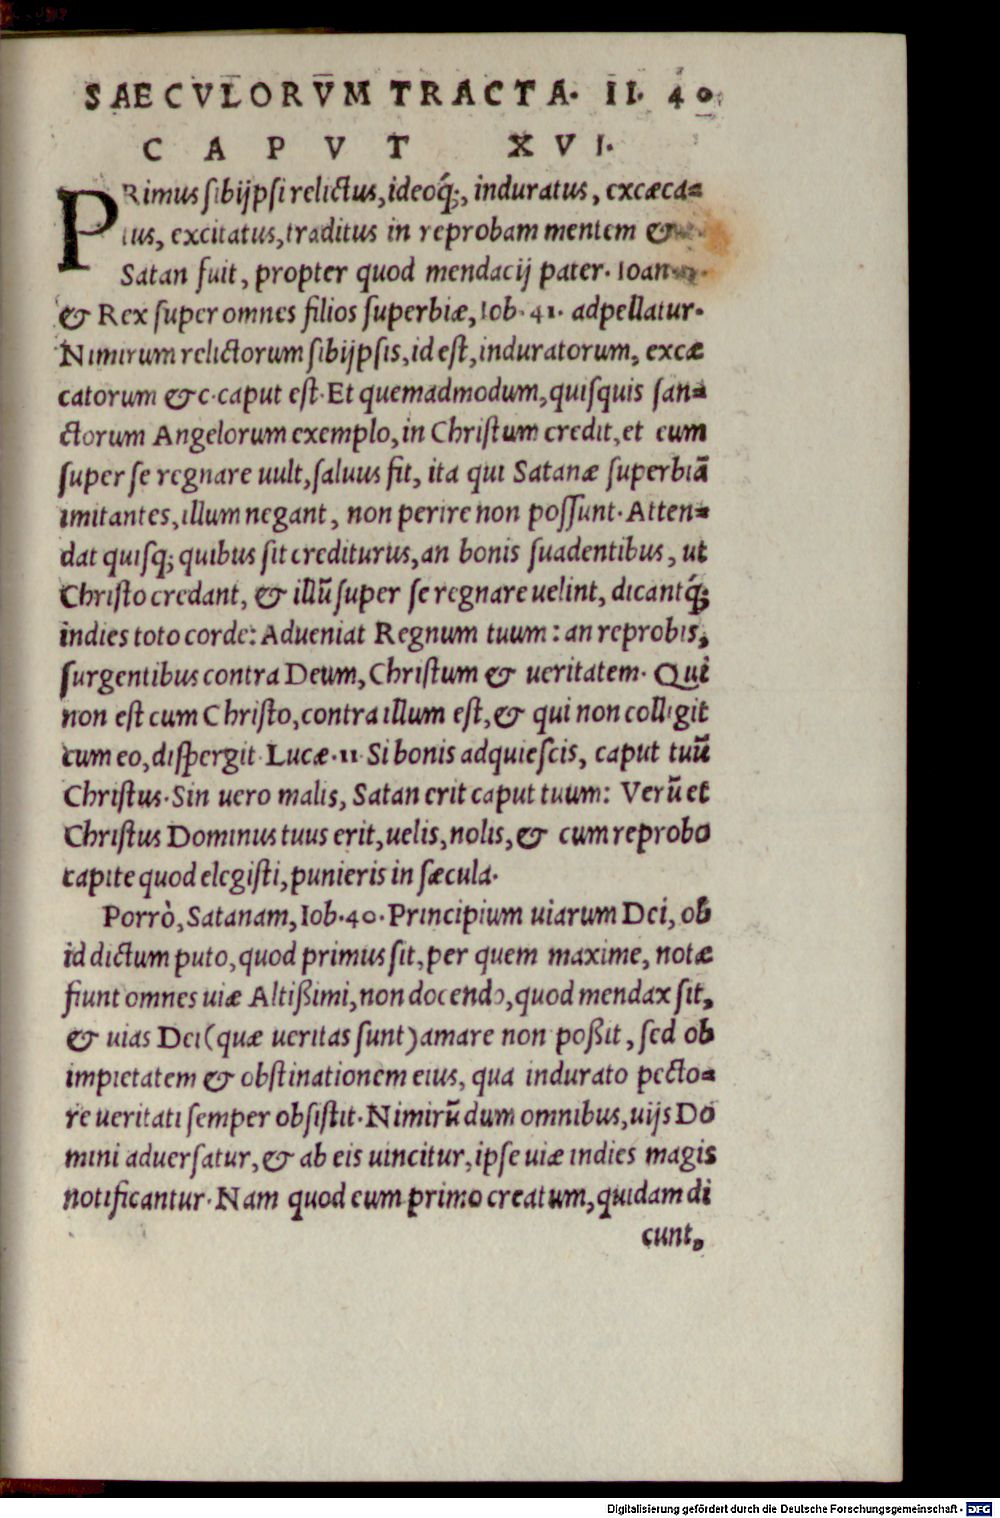 SAECVLORVM TRACTA. II. 40
CAPVT XVI.
PRimus sibijpsi relictus, ideoq́;, induratus, excæca=
tus, excitatus, traditus in reprobam mentem &
Satan fuit, propter quod mendacij pater. Ioan
& Rex super omnes filios superbiæ, Iob. 41. adpellatur.
Nimirum relictorum sibijpsis, id est, induratorum, excæ
catorum &c. caput est. Et quemadmodum, quisquis san=
ctorum Angelorum exemplo, in Christum credit, et eum
super se regnare uult, saluus fit, ita qui Satanæ superbiā
imitantes, illum negant, non perire non possunt. Atten=
dat quisq; quibus sit crediturus, an bonis suadentibus, ut
Christo credant, & illū super se regnare uelint, dicantq́;
indies toto corde: Adueniat Regnum tuum: an reprobis,
surgentibus contra Deum, Christum & ueritatem. Qui
non est cum Christo, contra illum est, & qui non colligit
cum eo, dispergit. Lucæ. 11. Si bonis adquiescis, caput tuū
Christus. Sin uero malis, Satan erit caput tuum: Verū et
Christus Dominus tuus erit, uelis, nolis, & cum reprobo
capite quod elegisti, punieris in sæcula.
Porrò, Satanam, Iob. 40. Principium uiarum Dei, ob
id dictum puto, quod primus sit, per quem maxime, notæ
fiunt omnes uiæ Altißimi, non docendo, quod mendax sit,
& uias Dei (quæ ueritas sunt) amare non poßit, sed ob
impietatem & obstinationem eius, qua indurato pecto=
re ueritati semper obsistit. Nimirū dum omnibus, uijs Do
mini aduersatur, & ab eis uincitur, ipse uiæ indies magis
notificantur. Nam quod eum primo creatum, quidam di
cunt,
Digitalisierung gefördert durch die Deutsche Forschungsgemeinschaft - DFG